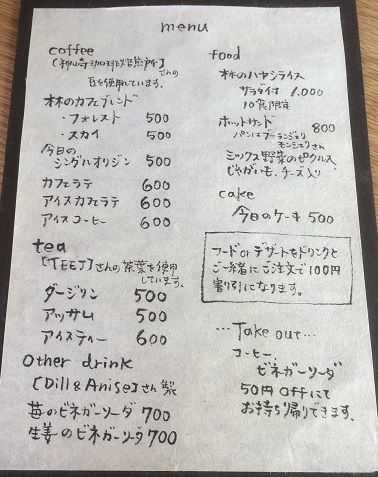 menu
coffee
【神山崎珈琲焙煎所】
さんの
豆を使用しています.
林のカフェブレンド
・フォレスト 500
・スカイ 500
今日の
シングルオリジン 500
カフェラテ 600
アイスカフェラテ 600
アイスコーヒー 600
tea
【TEEJ】さんの茶葉を使用
しています.
ダージリン 500
アッサム 500
アイスティー 600
other drink
【Dill&Anise】さん製
苺のビネガーソーダ 700
生姜のビネガーソーダ 700
food
林のハヤシライス
サラダ付 1,000
10食限定
ホットサンド 800
パンはブーランジェリ
モンシェリさん
ミックス野菜のピクルス
じゃがいも、チーズ入り
cake
今日のケーキ 500
フードorデザートをドリンクと
ご一緒にご注文で100円
割引になります。
...Take out...
コーヒー、
ビネガーソーダ
50円Offにて
お持ち帰りできます.